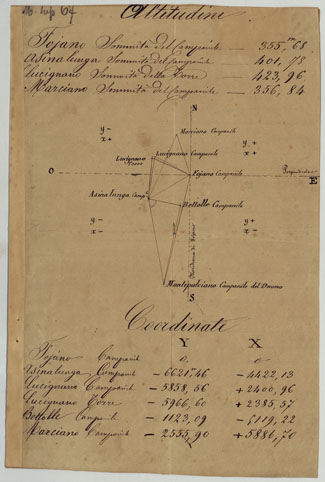 Altitudini
Fojano Sommità del Campanile — 355,m68
Asinalunga Sommità del Campanile — 401, 78
Lucignano Sommità della Torre — 423, 96
Marciano Sommità del Campanile — 356, 84
N
y –
x +
Marciano Campanile
y +
x +
Lucignano Campanile
Lucignano Torre
O
Fojano Campanile
Perpendicolare
E
Asinalunga Camp.
Bettolle Campanile
y –
x –
y +
x –
Meridiana di Fojano
Montepulciano Campanile del Duomo
S
Coordinate
Y X
Fojano Campanile 0, 0,
Asinalunga Campanile – 6621,46 – 4422,13
Lucignano Campanile – 5858,56 + 2400,96
Lucignano Torre – 5966,60 + 2385,57
Bettolle Campanile – 1123,09 – 5119,22
Marciano Campanile – 2555,90 + 5886,70